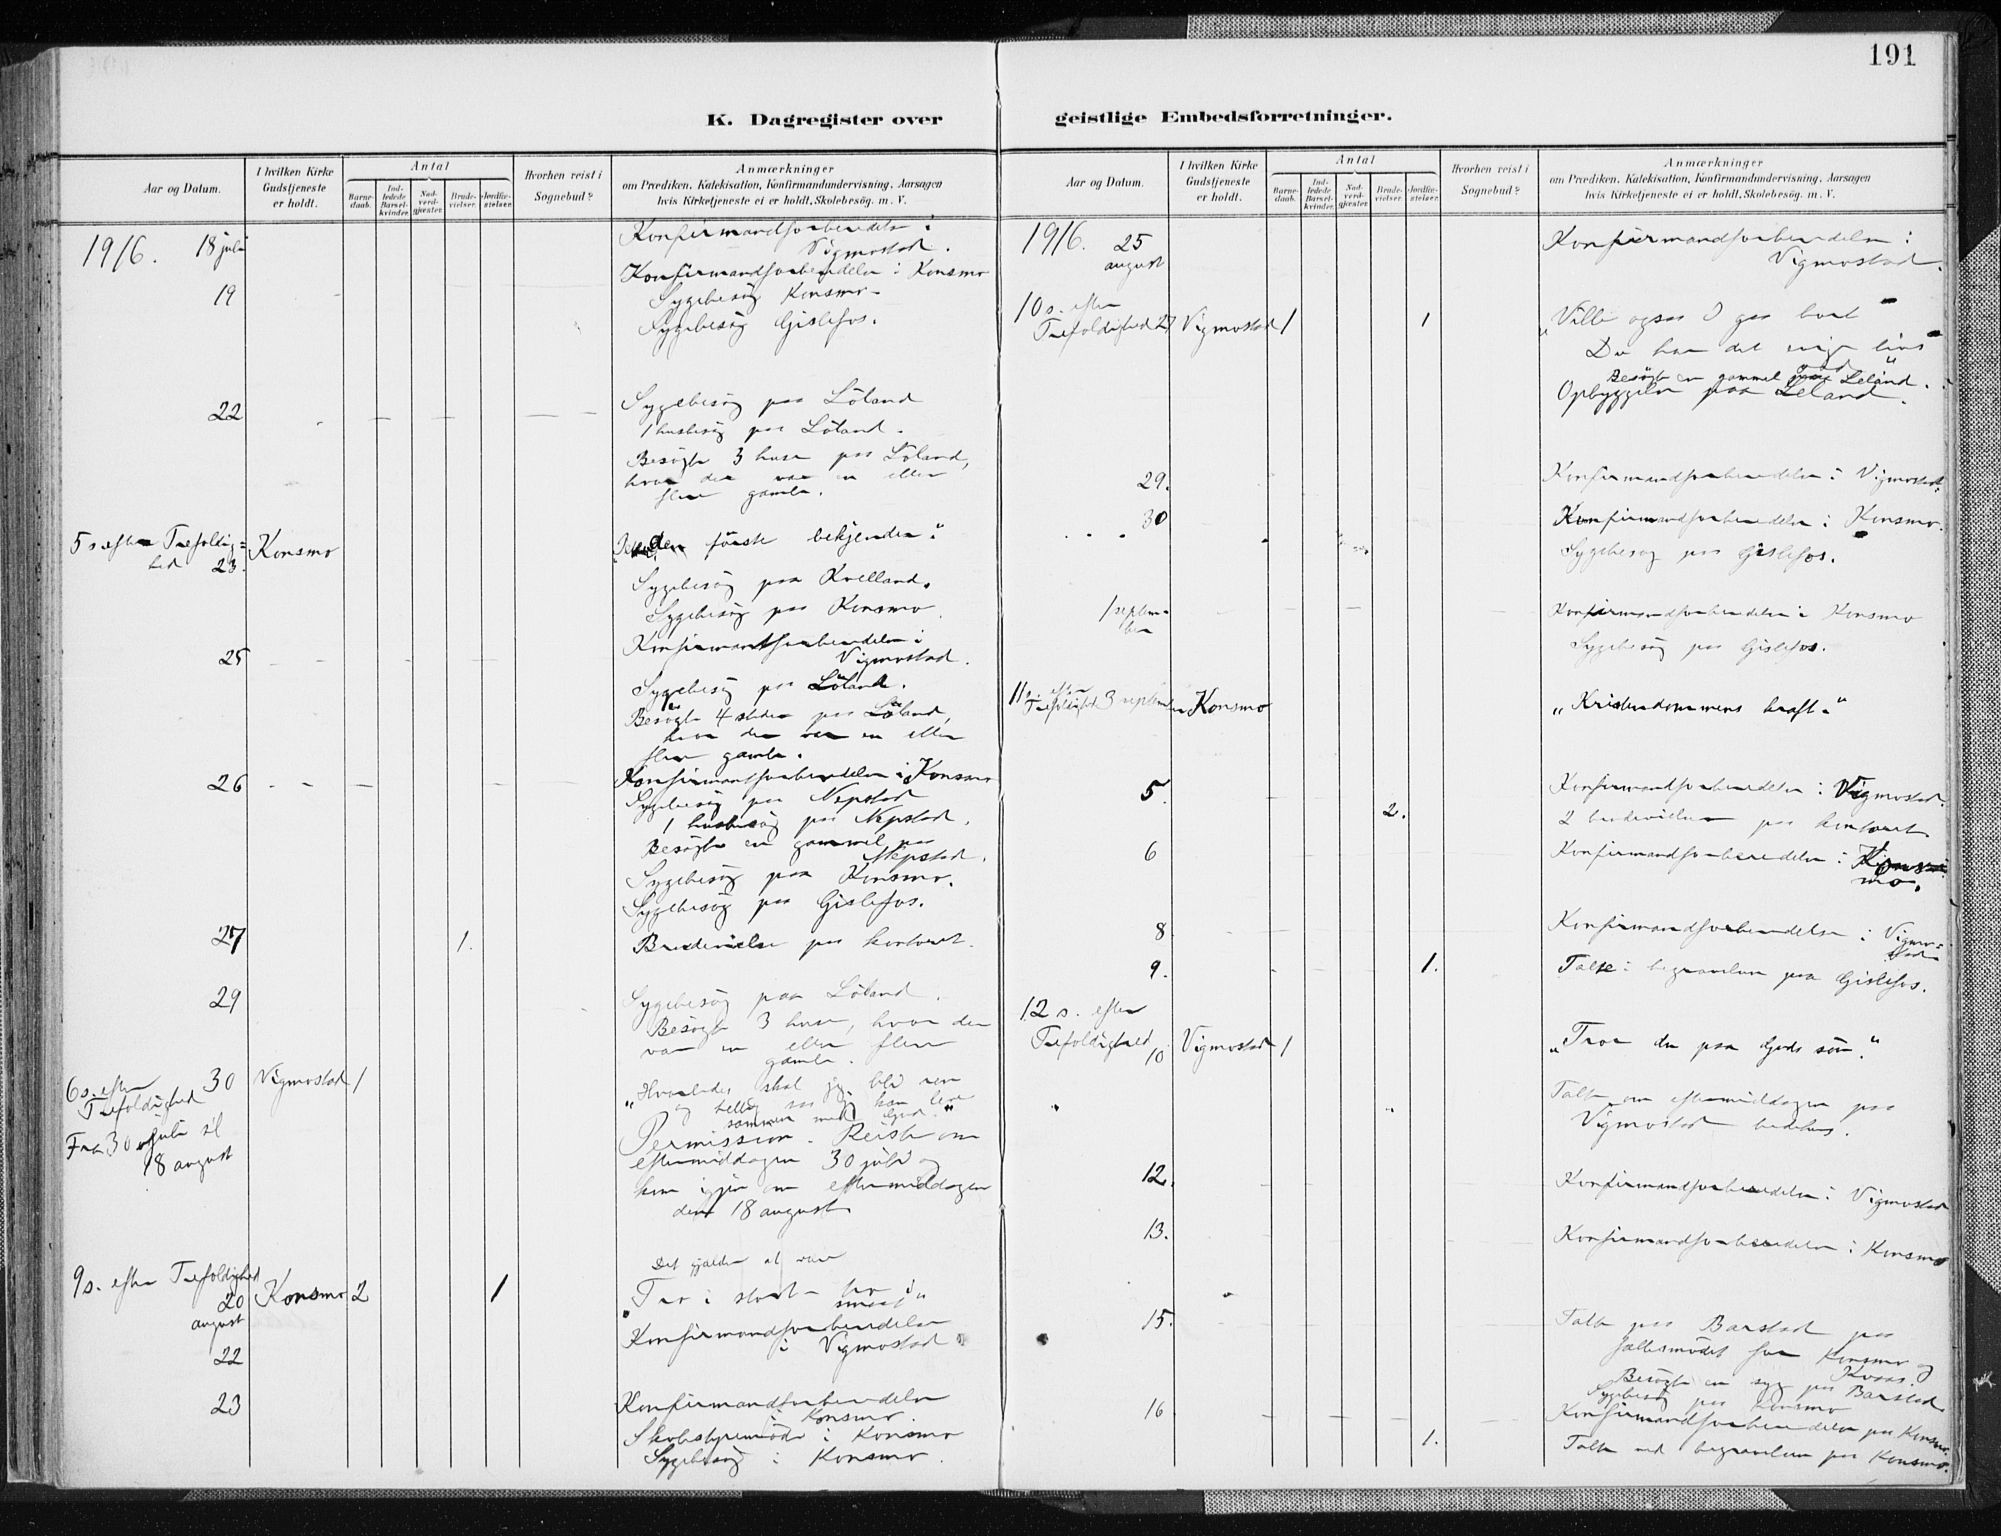 191
K. Dagregister over
geistlige Embedsforretninger.
Aar og Datum.
I hvilken Kirke
Gudstjeneste
er holdt.
Antal
Barne-
daab.
Ind-
ledede
Barsel-
kvinder.
Nad-
verd-
gjæster.
Brude-
vielser.
Jordfæ-
stelser.
Hvorhen reist i
Sognebud?
Anmærkninger
om Prædiken, Katekisation, Konfirmandundervisning, Aarsagen
hvis Kirketjeneste ei er holdt, Skolebesøg. m. V.
1916. 18 juli
Konfirmandforberedelse i
Vigmostad.
19
Konfirmandforberedelse i Konsmo
Sygebesøg Konsmo
Sygebesøg Gislefos.
22
Sygebesøg paa Löland
1 husbesøg paa Löland.
Besøgte 3 huse paa Löland,
hvor der var en eller
flere gamle.
5 s. efter Trefoldig=
hed 23. Konsmo
den første bekjender."
Sygebesøg paa Kvelland.
Sygebesøg paa Konsmo.
25
Konfirmantforberedelse i
Vigmostad.
Sygebesøg paa Löland.
Besøgte 4 steder paa Löland,
hvor der var en eller
flere gamle.
26
Konfirmantforberedelse i Konsmo
Sygebesøg paa Nepstad
1 husbesøg paa Nepstad.
Besøgte en gammel paa
Nepstad.
Sygebesøg paa Konsmo.
Sygebesøg paa Gislefos.
27 1. Brudevielse paa kontoret.
29
Sygebesøg paa Löland.
Besøgte 3 huse, hvor der
var en eller flere
gamle.
6 s. efter 30 Vigmostad 1
Trefoldighed
"Hvorledes skal jeg bli ren
og hellig saa jeg kan leve
sammen med Gud."
Fra 30 juli til
18 august
Permission. Reiste om
eftermiddagen 30 juli og
kom igjen om eftermiddagen
den 18 august
9 s. efter Trefoldighed
20 Konsmo 2 1
august
Det gjælder at være
"Tro i stort - tro i
smaat"
22
Konfirmandforberedelse
i Vigmostad
23
Konfirmandforberedelse
i Konsmo.
Skolestyremöde i Konsmo
Sygebesøg i Konsmo.
Aar og Datum.
I hvilken Kirke
Gudstjeneste
er holdt.
Antal
Barne-
daab.
Ind-
ledede
Barsel-
kvinder.
Nad-
verd-
gjæster.
Brude-
vielser.
Jordfæ-
stelser.
Hvorhen reist i
Sognebud?
Anmærkninger
om Prædiken, Katekisation, Konfirmandundervisning, Aarsagen
hvis Kirketjeneste ei er holdt, Skolebesøg. m. V.
1916. 25
august
Konfirmandforberedelse i
Vigmostad.
10 s. efter
Trefoldighed 27 Vigmostad 1 1
"Ville ogsaa I gaa bort
Du har det evige livs
Besøgte en gammel paa Leland.
Opbyggelse paa Leland.
29.
Konfirmandforberedelse i Vigmostad.
30
Konfirmandforberedelse i Konsmo.
Sygebesøg paa Gislefos.
1 septem=
ber
Konfirmandforberedelse i Konsmo
Sygebesøg paa Gislefos.
11 s. efter
Trefoldighed 3 september Konsmo
"Kristendommens kraft."
5.
Konfirmandforberedelse i Vigmostad.
2. 2 brudevielser paa kontoret
6
Konfirmandforberedelse i Kons=
mo.
8.
Konfirmandforberedelse i Vigmo=
stad
9. 1. Talte i begravelse paa Gislefos.
12 s. efter
Trefoldighed
10 Vigmostad 1
"Tror du paa Guds søn."
Talte om eftermiddagen paa
Vigmostad bedehus.
12.
Konfirmandforberedelse i Vigmostad
13.
Konfirmandforberedelse i Konsmo
15.
Talte paa Barstad paa
fællesmödet for Konsmo og
Kvaas.
Besøgte en syg paa Barstad
16
Sygebesøg paa Konsmo
Konfirmandforberedelse paa Konsmo.
1. Talte ved begravelse paa Konsmo.